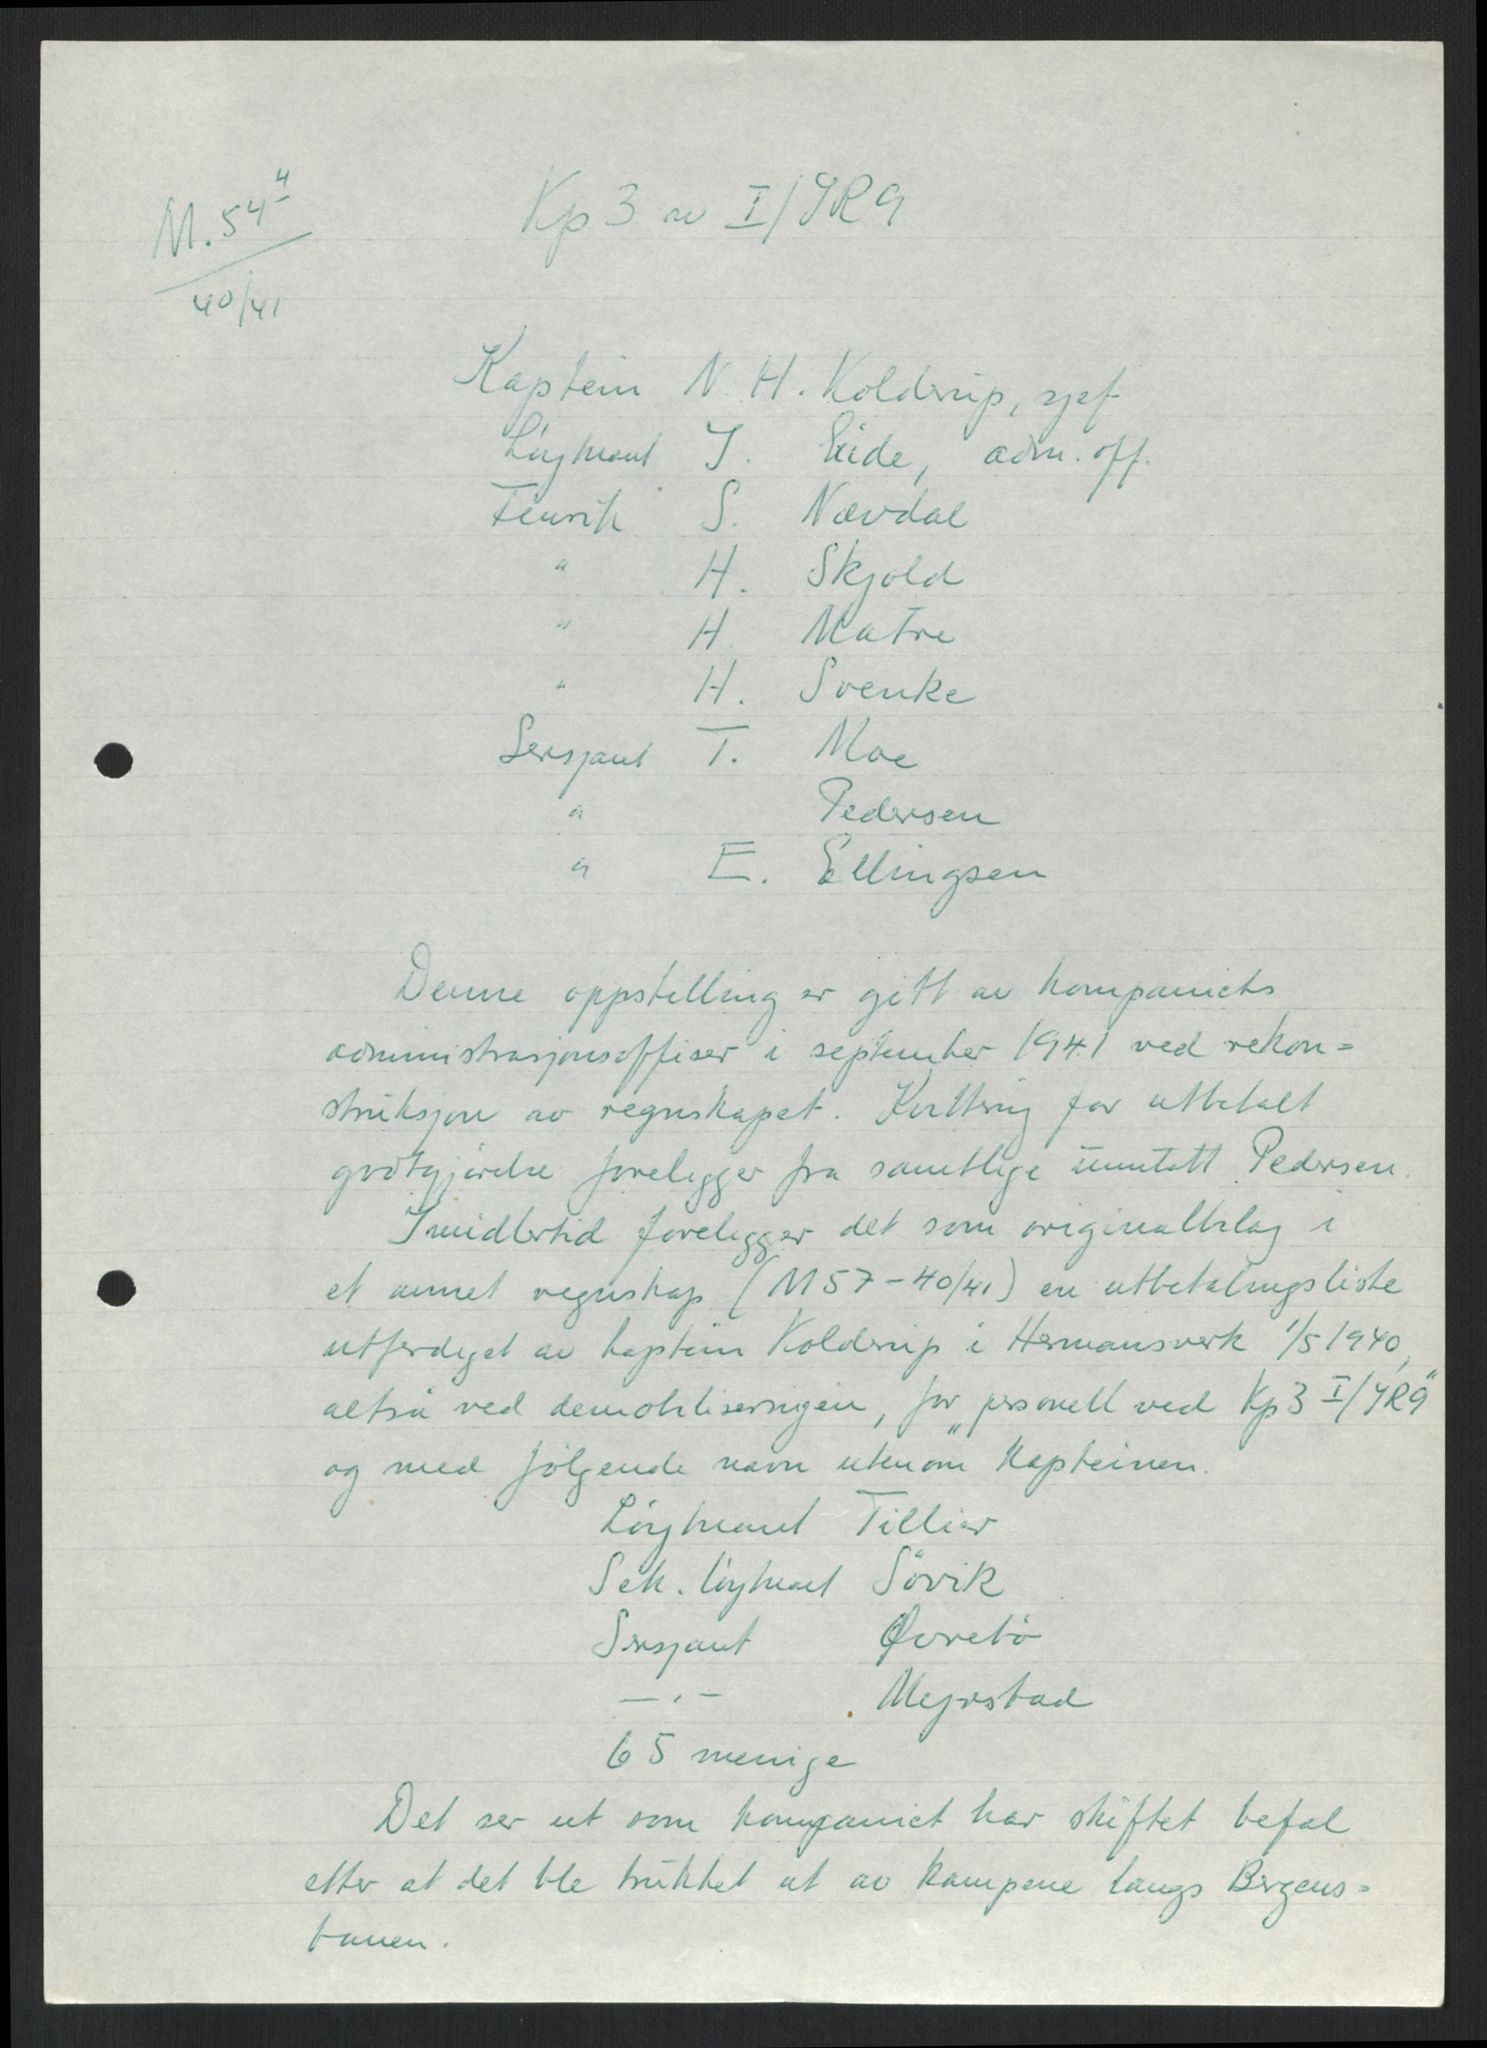 M. 54 4
40/41
Kp 3 av I/IR 9
Kaptein N. H. Koldrup, sjef
Løytnant J. Eide, adm. off.
Fenrik S. Nævdal
" H. Skjold
" H. Matre
" H. Svenke
Sersjant T. Moe
" Pedersen
" E. Ellingsen
Denne oppstelling er gitt av kompaniets
administrasjonsoffiser i september 1941 ved rekon=
struksjon av regnskapet. Kvittring for utbetalt
godtgjørelse foreligger fra samtlige unntatt Pedersen.
Imidlertid foreligger det som originalbilag i
et annet regnskap (M 57 - 40/41) en utbetalingsliste
utferdiget av kaptein Koldrup i Hermansverk 1/5 1940,
altså ved demobiliseringen, for „personell ved Kp 3 I/IR 9"
og med følgende navn utenom kapteinen.
Løytnant Tillier
Sek. løytnant Søvik
Sersjant Øvrebø
— " — Myrstad
65 menige
Det ser ut som kompaniet har skiftet befal
etter at det ble trukket ut av kampene langs Bergens=
banen.